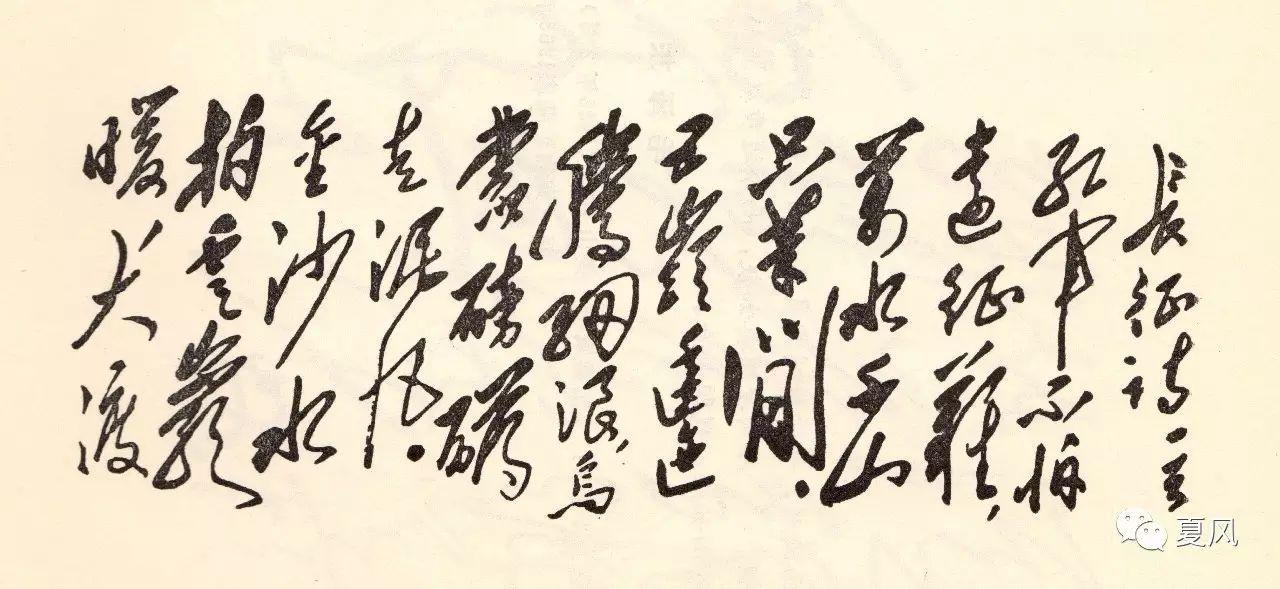 長征詩一首
紅軍不怕
遠征難,
萬水千山
只等閒。
五嶺逶迤
騰細浪,烏
蒙磅礴
走泥丸。
金沙水
拍雲巖
暖大渡
夏风